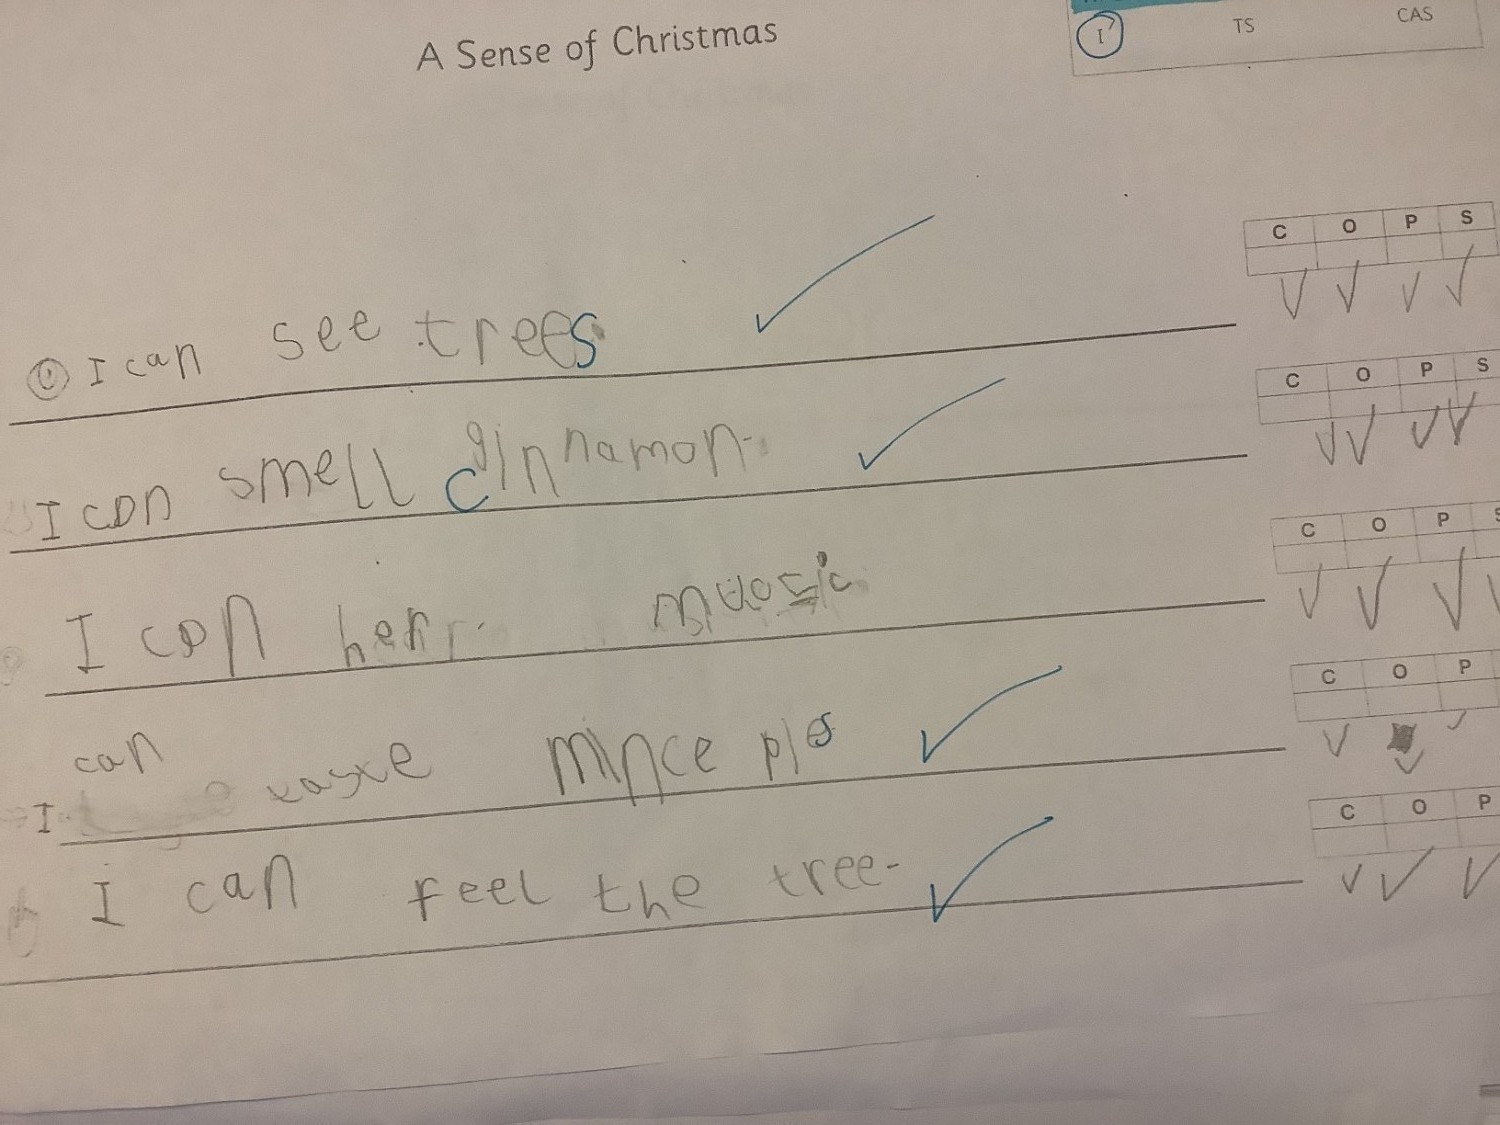 A Sense of Christmas
I TS CAS
C O P S
I can see trees
C O P S
I can smell cinnamon.
C O P S
I can henr. muosic
C O P
can
I tasve mince pis
C O P
I can feel the tree.